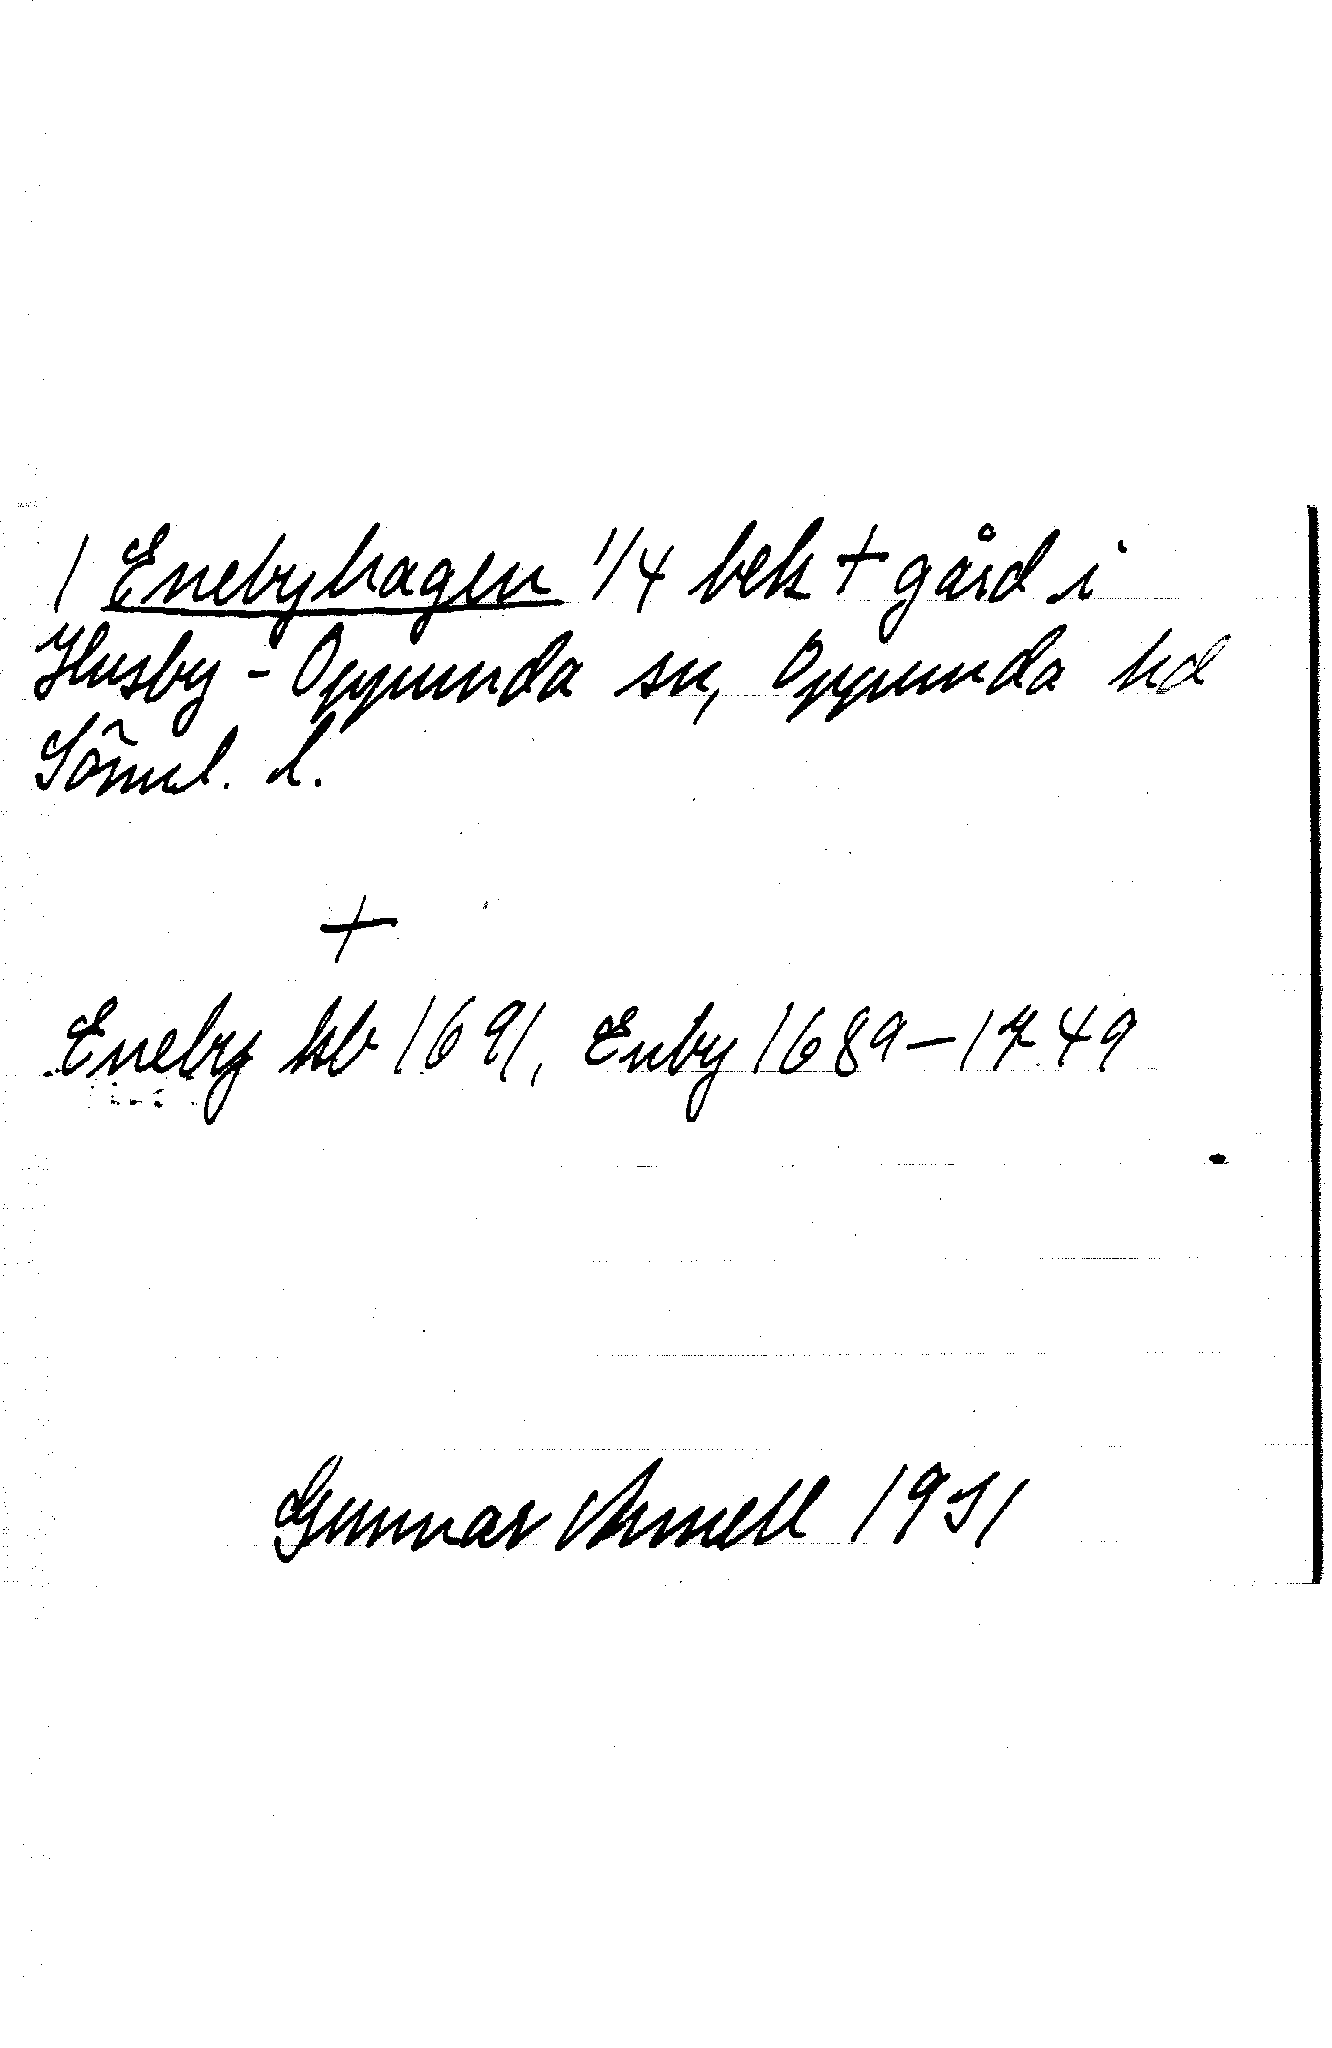 1 Enebyhagen 1/4 bek + gård i
Husby-Oppunda sn, Oppunda hd
Söml. l.
+
Eneby kb 1691, Enby 1689-1749
Gunnar Arnell 1931